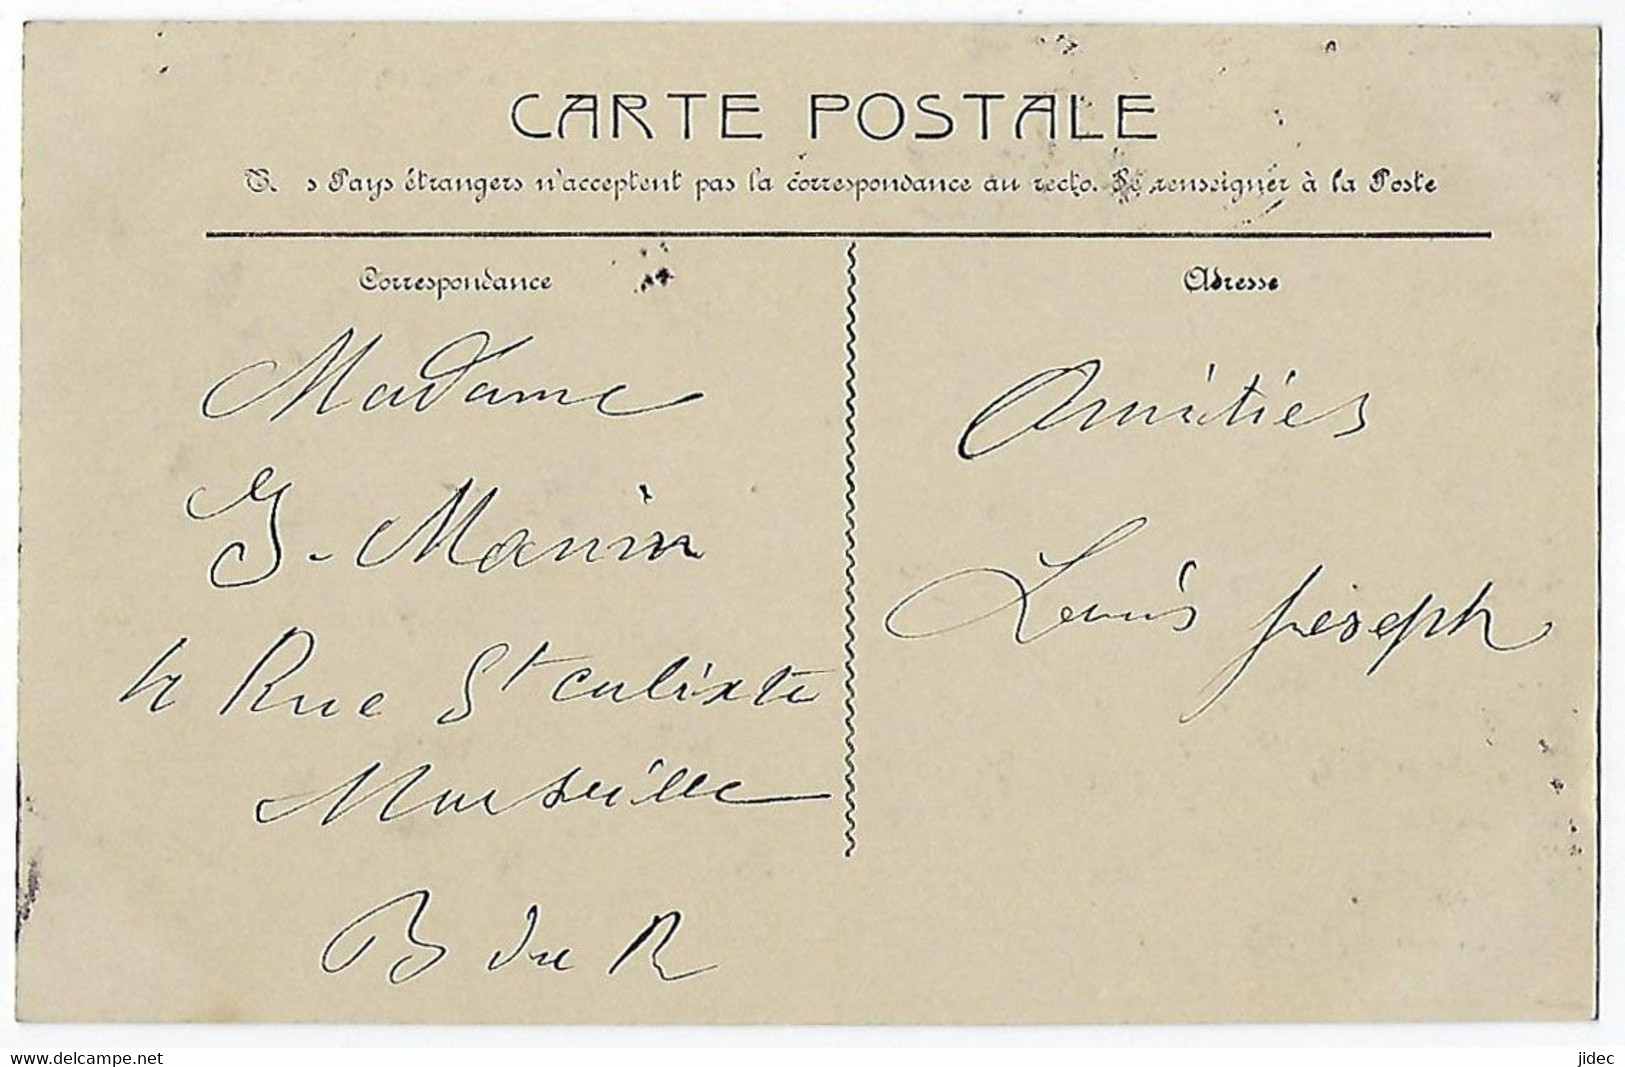 CARTE POSTALE
s Pays étrangers n'acceptent pas la correspondance au recto. Se renseigner à la Poste
Correspondance
Adresse
Madame
Manin
4 Rue St Calixte
Marseille
B du R
Amitiés
Louis Joseph
www.delcampe.net
jidec